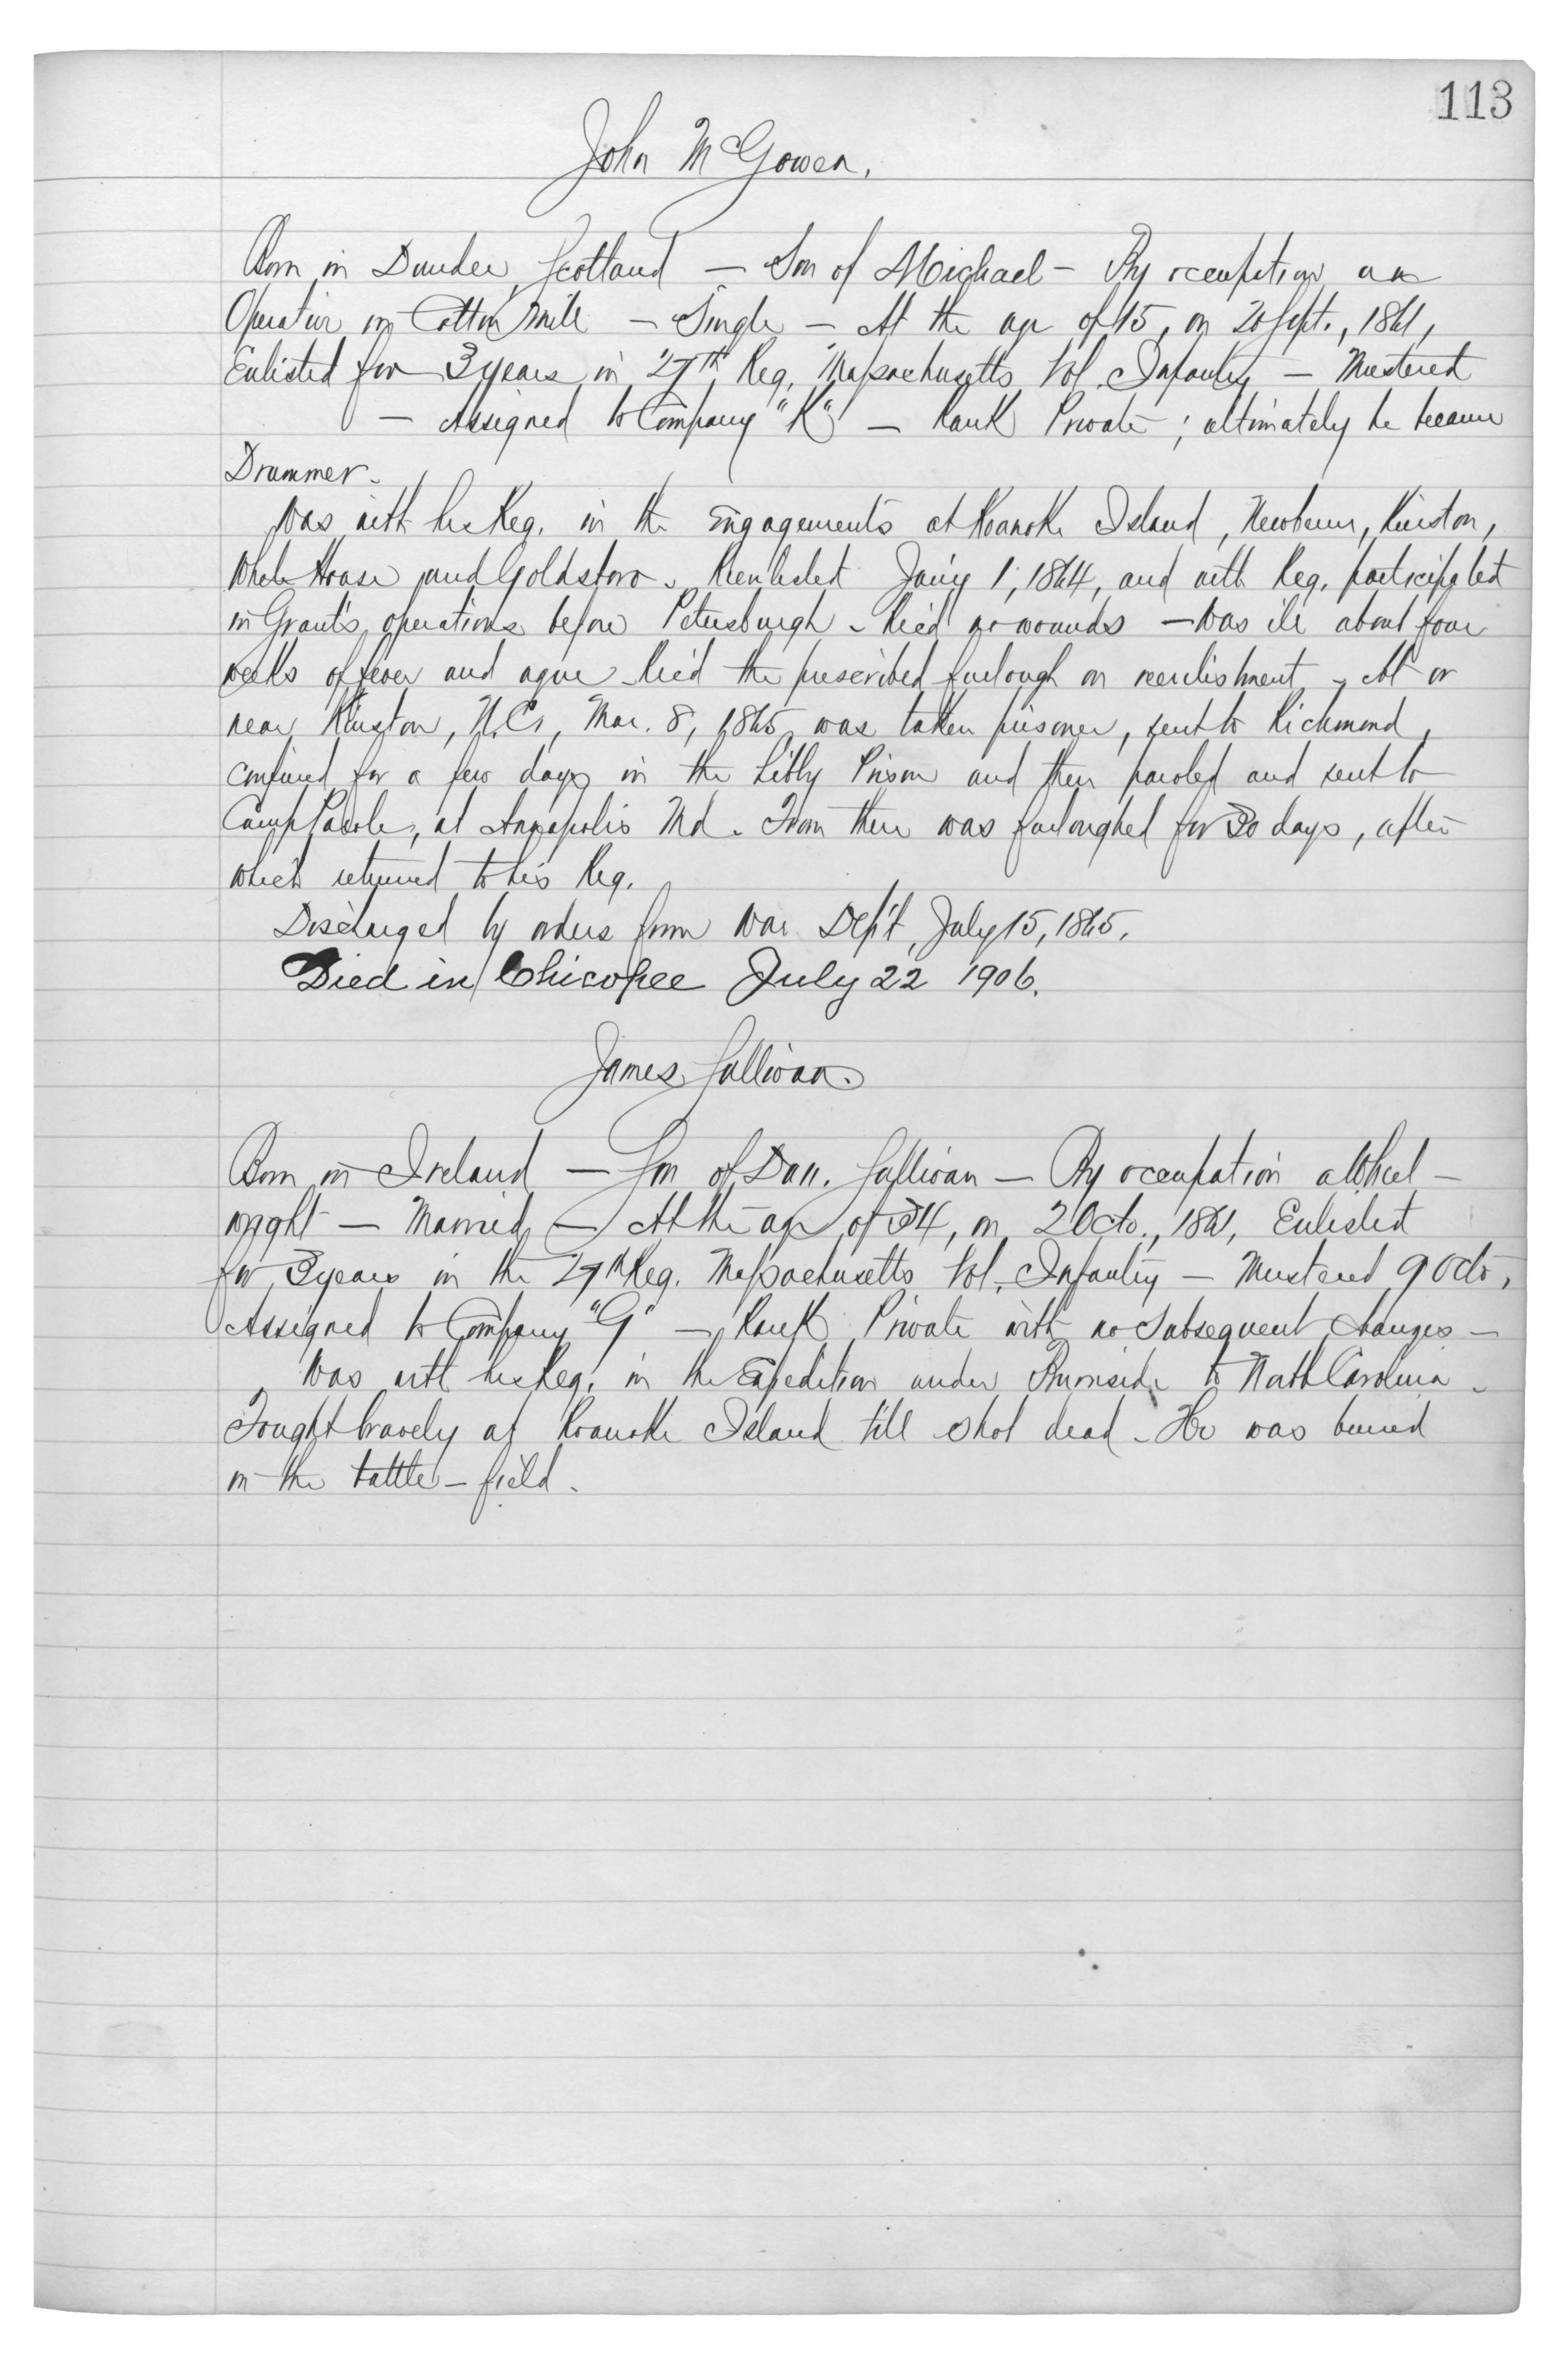 113
John McGowen.
Born in Dundee, Scotland — Son of Michael — By occupation an
Operative in Cotton Mill — Single — At the age of 15, on 20 Sept., 1861,
Enlisted for 3 years in 27th Reg. Massachusetts Vol. Infantry — Mustered
— Assigned to Company "K" — Rank Private ; ultimately he became
Drummer.
Was with his Reg. in the Engagements at Roanoke Island, Newbern, Kinston,
White House and Goldsboro. Reenlisted Jan'y 1, 1864, and with Reg. participated
in Grant's operations before Petersburgh – Rec'd no wounds – Was ill about four
weeks of fever and ague – Rec'd the prescribed furlough on reenlistment – At or
near Kinston, N.C., Mar. 8, 1865 was taken prisoner, sent to Richmond,
confined for a few days in the Libby Prison and then paroled and sent to
Camp Parole, at Annapolis Md. From there was furloughed for 30 days, after
which returned to his Reg.
Discharged by orders from War Dep't, July 15, 1865.
Died in Chicopee July 22 1906.
James Sullivan.
Born in Ireland — Son of Dan. Sullivan — By occupation a Wheel-
wright — Married — At the age of 34, on 2 Octo., 1861, Enlisted
for 3 years in the 27th Reg. Massachusetts Vol. Infantry — Mustered 9 Octo.
Assigned to Company "G" — Rank Private with no subsequent changes —
Was with his Reg. in the Expedition under Burnside to North Carolina –
Fought bravely at Roanoke Island till shot dead – He was buried
on the battle-field.